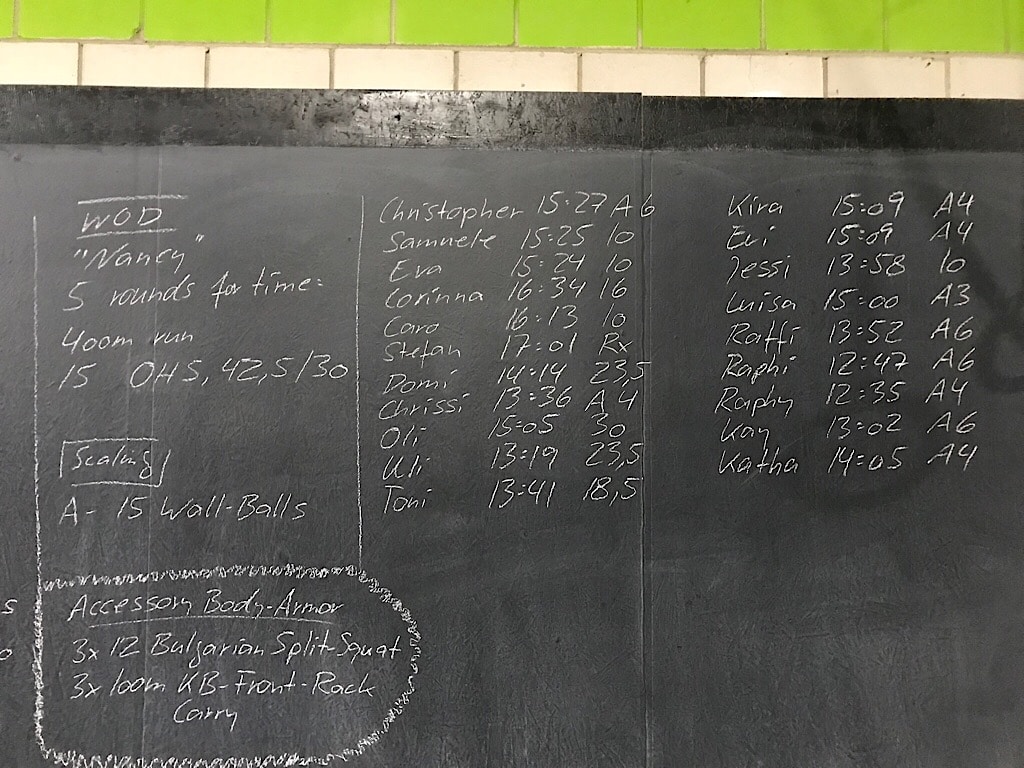 WOD
"Nancy"
5 rounds for time:
400m run
15 OHS, 42,5/30
Scaling
A- 15 Wall-Balls
Accessory Body-Armor
3x 12 Bulgarian Split-Squat
3x 100m KB-Front-Rack
Carry
Christopher 15:27 A6
Samuele 15:25 10
Eva 15:24 10
Corinna 16:34 16
Caro 16:13 10
Stefan 17:01 Rx
Domi 14:14 23,5
Chrissi 13:36 A4
Oli 15:05 30
Uli 13:19 23,5
Toni 13:41 18,5
Kira 15:09 A4
Evi 15:09 A4
Jessi 13:58 10
Luisa 15:00 A3
Raffi 13:52 A6
Raphi 12:47 A6
Raphy 12:35 A4
Kay 13:02 A6
Katha 14:05 A4